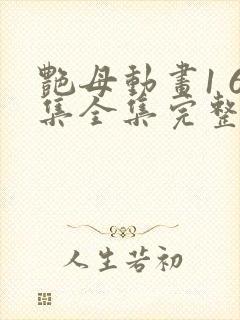 艷母動畫1 6
集全集完整
人生若初